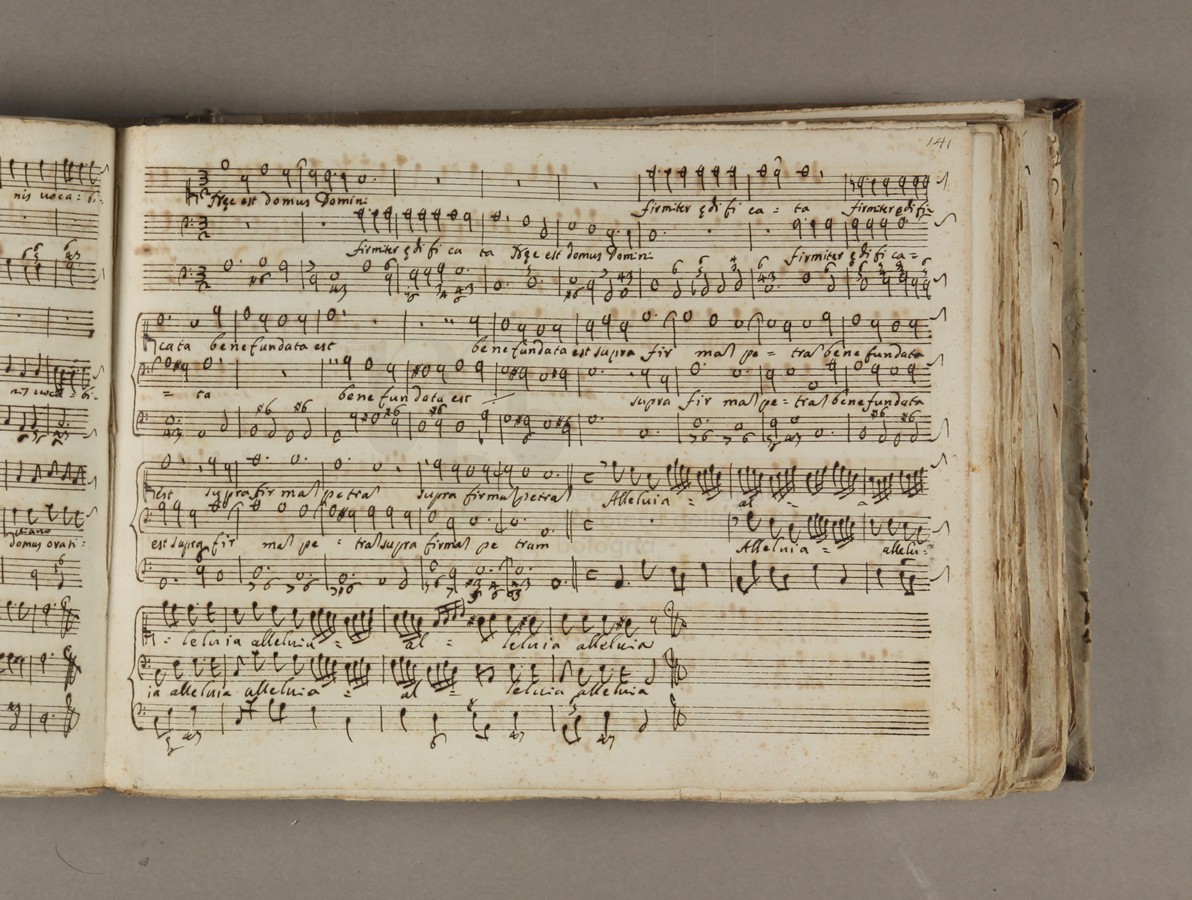 141
nis uoca = bi-
Hęc est domus Domini firmiter ędi fi ca = ta firmiter ędi fi-
firmiter ędi fi ca ta Hęc est domus Domini firmiter ędi fi ca =
cata bene fundata est bene fundata est supra fir mas pe = tras bene fundata
nis uoca = bi-
= ta bene fundata est supra fir mas pe = tras bene fundata
est supra fir mas petras supra firmas petras Alleluia = al = =
piano
domus orati:
est supra fir mas pe = tras supra firmas pe tram Alleluia = allelu:
= leluia alleluia = al = leluia alleluia
ia alleluia alleluia = al = leluia alleluia